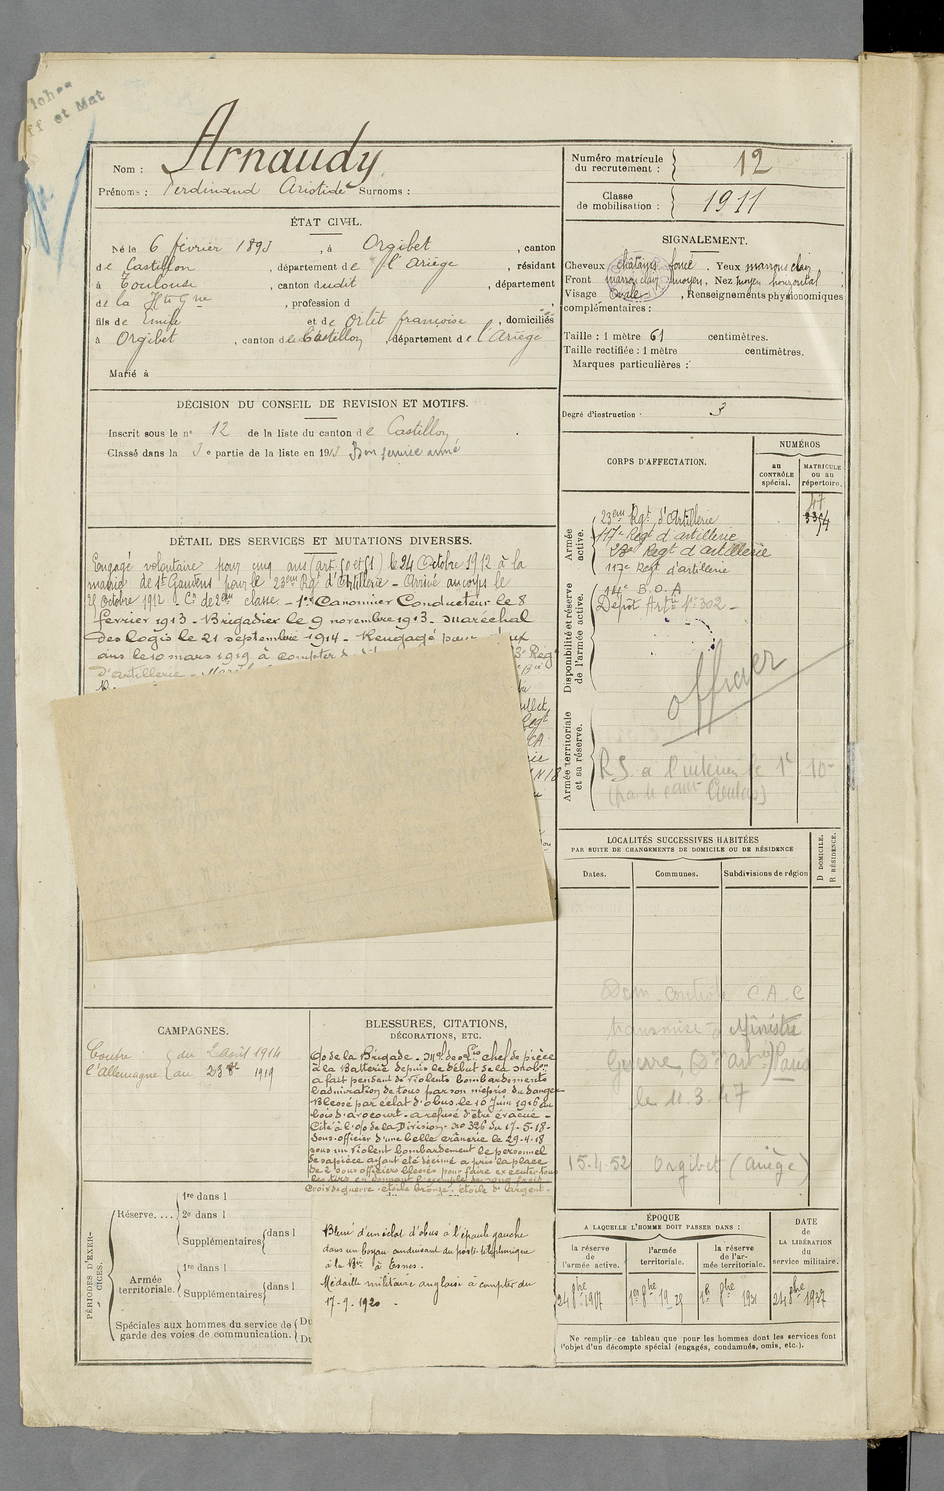 Arnaudy
Nom :
Prénoms : Ferdinand Aristide Surnoms :
Numéro matricule
du recrutement : 12
Classe
de mobilisation : 1911
ÉTAT CIVIL.
Né le 6 février 1893, à Orgibet, canton
de Castillon, département de l'Ariège, résidant
à Toulouse, canton dudit, département
de la Hte Gne, profession d
fils de Emile et de Ortet françoise, domiciliés
à Orgibet, canton de Castillon, département de l'Ariège
Marié à
SIGNALEMENT.
Cheveux châtains foncé. Yeux marrons clair
Front moyen, Nez moyen horizontal
Visage Ovale, Renseignements physionomiques
complémentaires :
Taille : 1 mètre 61 centimètres.
Taille rectifiée : 1 mètre centimètres.
Marques particulières :
Degré d'instruction : 3
DÉCISION DU CONSEIL DE REVISION ET MOTIFS.
Inscrit sous le n° 12 de la liste du canton de Castillon
Classé dans la 3e partie de la liste en 1913 Bon service armé
DÉTAIL DES SERVICES ET MUTATIONS DIVERSES.
Engagé volontaire pour cinq ans (art. 50 et 51) le 24 Octobre 1912 à la
mairie de St Gaudens pour le 23ème Rgt d'Artillerie - Arrivé au corps le
25 Octobre 1912 - Cr de 2ème classe - 1er Canonnier Conducteur le 8
février 1913 - Brigadier le 9 novembre 1913 - Maréchal
des logis le 21 septembre 1914 - Rengagé pour
ans le 10 mars 1919 à compter
d'artillerie -
CORPS D'AFFECTATION.
NUMÉROS
au
CONTRÔLE
spécial.
MATRICULE
ou au
répertoire.
Armée
active.
23ème Rgt d'Artillerie
117e Regt d'artillerie
23e Regt d'artillerie
117e Regt d'artillerie
47
Disponibilité et réserve
de l'armée active.
114e B.O.A
Dépôt Artie No 302 -
officier
Armée territoriale
et sa réserve.
LOCALITÉS SUCCESSIVES HABITÉES
PAR SUITE DE CHANGEMENTS DE DOMICILE OU DE RÉSIDENCE
Dates.
Communes.
Subdivisions de région
D DOMICILE.
R RÉSIDENCE.
Dem. contrôle C.A.C
transmise à Ministre
Guerre, Paris
le 11.3.47
15-4-52 Orgibet (Ariège)
CAMPAGNES.
Contre
l'Allemagne
du 2 août 1914
au 23 8bre 1919
BLESSURES, CITATIONS,
DÉCORATIONS, ETC.
de la Brigade - Mal des Lis chef de pièce
à la Batterie depuis le début de la mobon
a fait pendant de violents bombardements
l'admiration de tous par son mépris du danger
Blessé par éclat d'obus le 10 Juin 1916 au
bois d'avocourt - a refusé d'être évacué -
Cité à l'o/o de la Division no 326 du 17-5-18 -
sous-officier d'une belle crânerie le 29-4-18
sous un violent bombardement le personnel
de sa pièce ayant été décimé a pris la place
de 2 sous officiers blessés pour faire exécuter tous
les tirs en donnant l'exemple du sang froid
Croix de guerre - étoile bronze - étoile d'argent -
Blessé d'un éclat d'obus à l'épaule gauche
dans un boyau conduisant du poste téléphonique
à la Bie à Esnes.
Médaille militaire anglaise à compter du
17-9-1920 -
PÉRIODES D'EXERCICES.
Réserve....
1re dans l
2e dans l
Supplémentaires dans l
Armée
territoriale.
1re dans l
Supplémentaires dans l
Spéciales aux hommes du service de
garde des voies de communication.
Du
Du
ÉPOQUE
A LAQUELLE L'HOMME DOIT PASSER DANS :
la réserve
de
l'armée active.
l'armée
territoriale.
la réserve
de l'ar-
mée territoriale.
DATE
de
LA LIBÉRATION
du
service militaire.
24 8bre 1917
1er 8bre 1925
1er 8bre 1931
24 8bre 1937
Ne remplir ce tableau que pour les hommes dont les services font
l'objet d'un décompte spécial (engagés, condamnés, omis, etc.).